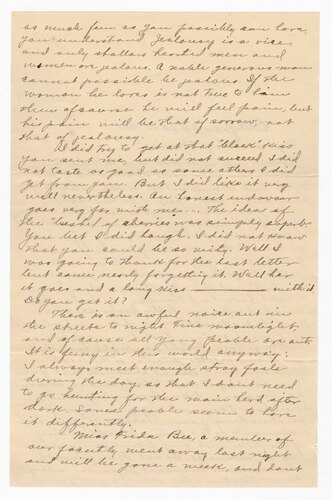 as much fun as you possibly can love,
you understand. Jealousy is a vice
and only shallow hearted men and
women are jealous. A noble generous man
cannot possible be jealous. If the
woman he loves is not true to him
then of course he will feel pain, but
his pain will be that of sorrow, not
that of jealousy.
I did try to get at that "black" kiss
you sent me, but did not succeed I did
not taste as good as some others I did
get from you. But I did like it very
well nevertheless. An honest endeavor
goes very far with me. The idea of
the "bushel of cherries" was simply superb.
You bet I did laugh. I did not know
that you could be so witty. Well I
was going to thank for the last letter
but came nearly forgetting it. Well her
it goes and a long kiss ——— with it
Do you get it?
There is an awful noise out in
the streets to night. Fine moonlight;
and of cause all young people are out.
It is funny in this world anyway;
I always meet enough stray fools
during the day, so that I dont need
to go hunting for the main herd after
dark. Some people seem to love
it differantly.
Miss Frida Bee, a member of
our facutly went away last night
and will be gone a week, and dont